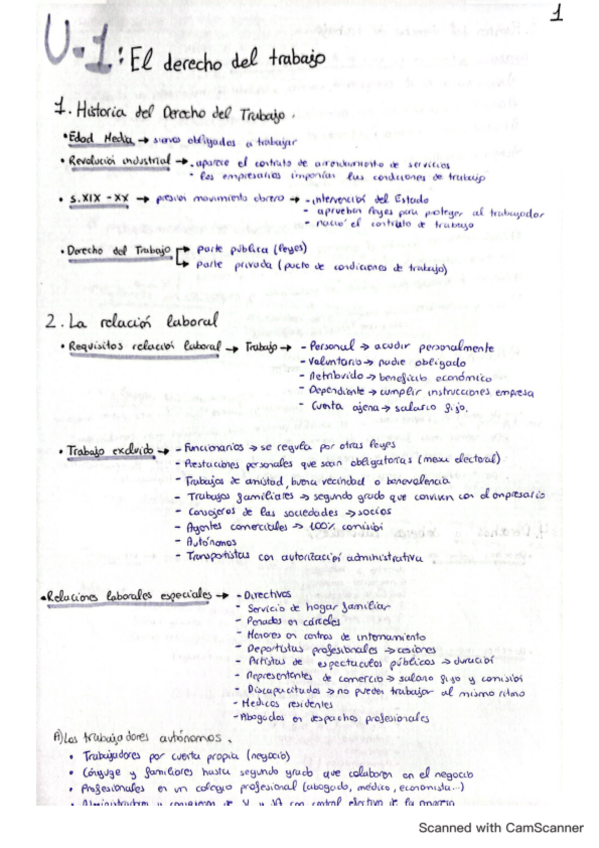 1
U.1: El derecho del trabajo
1. Historia del Derecho del Trabajo.
• Edad Media → siervos obligados a trabajar
• Revolución industrial → • aparece el contrato de arrendamiento de servicios
• los empresarios imponían las condiciones de trabajo
• S.XIX - XX → presión movimiento obrero → - intervención del Estado
- aprueban leyes para proteger al trabajador
- nació el contrato de trabajo
• Derecho del Trabajo → parte pública (leyes)
→ parte privada (pacto de condiciones de trabajo)
2. La relación laboral
• Requisitos relación laboral → Trabajo → - Personal → acudir personalmente
- Voluntario → nadie obligado
- Retribuido → beneficio económico
- Dependiente → cumplir instrucciones empresa
- Cuenta ajena → salario fijo.
• Trabajo excluido → - Funcionarios → se regula por otras leyes
- Prestaciones personales que sean obligatorias (mesa electoral)
- Trabajos de amistad, buena vecindad o benevolencia
- Trabajos familiares → segundo grado que conviven con el empresario
- Consejeros de las sociedades → socios
- Agentes comerciales → 100% comisión
- Autónomos
- Transportistas con autorización administrativa.
• Relaciones laborales especiales → - Directivos
- Servicio de hogar familiar
- Penados en cárceles
- Menores en centros de internamiento
- Deportistas profesionales → cesiones
- Artistas de espectáculos públicos → duración
- Representantes de comercio → salario fijo y comisión
- Discapacitados → no pueden trabajar al mismo ritmo
- Médicos residentes
- Abogados en despachos profesionales
A) Los trabajadores autónomos.
• Trabajadores por cuenta propia (negocio)
• Cónyuge y familiares hasta segundo grado que colaboren en el negocio
• Profesionales en un colegio profesional (abogado, médico, economista...)
Scanned with CamScanner